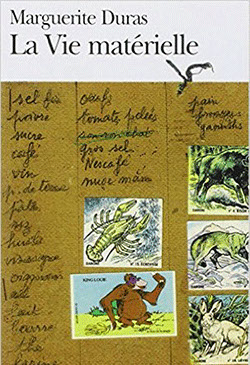 Marguerite Duras
La Vie matérielle
sel fin
poivre
sucre
café
vin
p. de terre
pâtes
riz
huile
vinaigre
oignons
ail
lait
beurre
thé
oeufs
tomates pelées
gros sel
Nescafé
nuoc mâm
pain
fromages
KING LOUIE